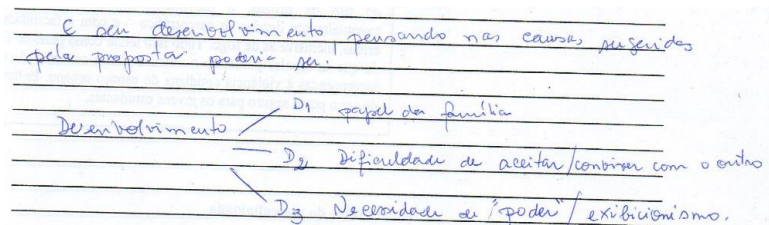 E seu desenvolvimento, pensando nas causas sugeridas
pela proposta, poderia ser:
D1 papel da família
Desenvolvimento
D2 Dificuldade de aceitar/conviver com o outro
D3 Necessidade de "poder"/ exibicionismo.